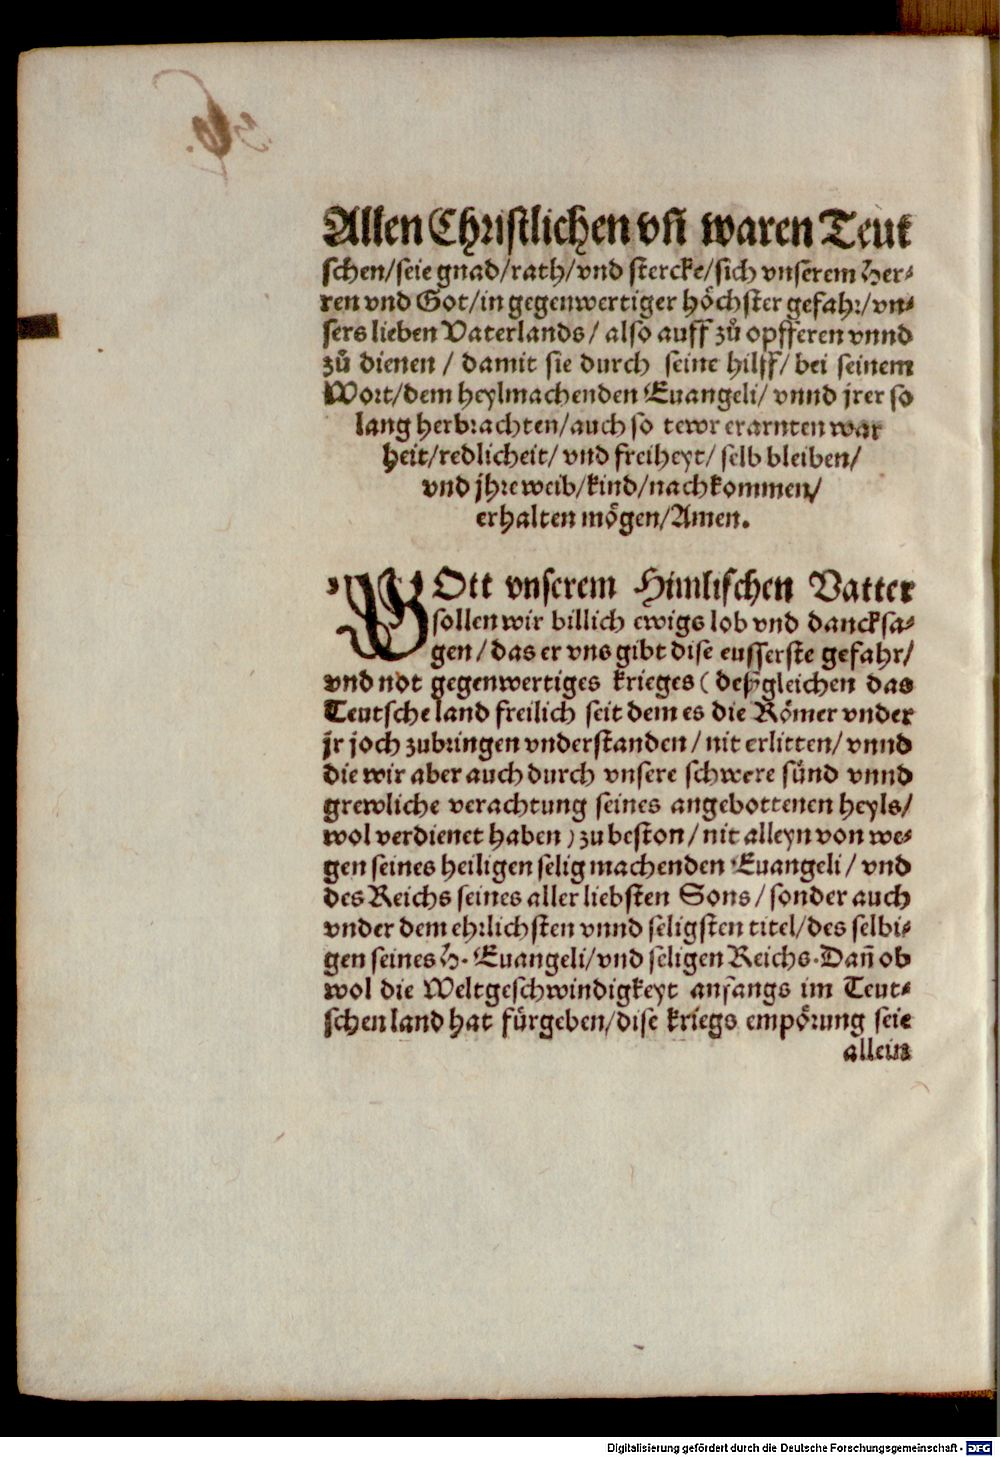 Allen Christlichen vñ waren Teut
schen/seie gnad/rath/vnd stercke/sich vnserem Her-
ren vnd Got/in gegenwertiger höchster gefahr/vn-
sers lieben Vaterlands/ also auff zů opfferen vnnd
zů dienen / damit sie durch seine hilff/ bei seinem
Wort/dem heylmachenden Euangeli/ vnnd jrer so
lang herbrachten/auch so tewr erarnten war
heit/redlicheit/ vnd freiheyt/ selb bleiben/
vnd jhre weib/kind/nachkommen/
erhalten mögen/Amen.
GOtt vnserem Himlischen Vatter
sollen wir billich ewigs lob vnd dancksa-
gen/ das er vns gibt dise eusserste gefahr/
vnd not gegenwertiges krieges ( deßgleichen das
Teutsche land freilich seit dem es die Römer vnder
jr joch zubringen vnderstanden/ nit erlitten/ vnnd
die wir aber auch durch vnsere schwere sünd vnnd
grewliche verachtung seines angebottenen heyls/
wol verdienet haben ) zu beston/ nit alleyn von we-
gen seines heiligen selig machenden Euangeli/ vnd
des Reichs seines aller liebsten Sons/ sonder auch
vnder dem ehrlichsten vnnd seligsten titel/des selbi-
gen seines H. Euangeli/vnd seligen Reichs. Dañ ob
wol die Weltgeschwindigkeyt anfangs im Teut-
schen land hat fürgeben/dise kriegs empörung seie
allein
Digitalisierung gefördert durch die Deutsche Forschungsgemeinschaft - DFG